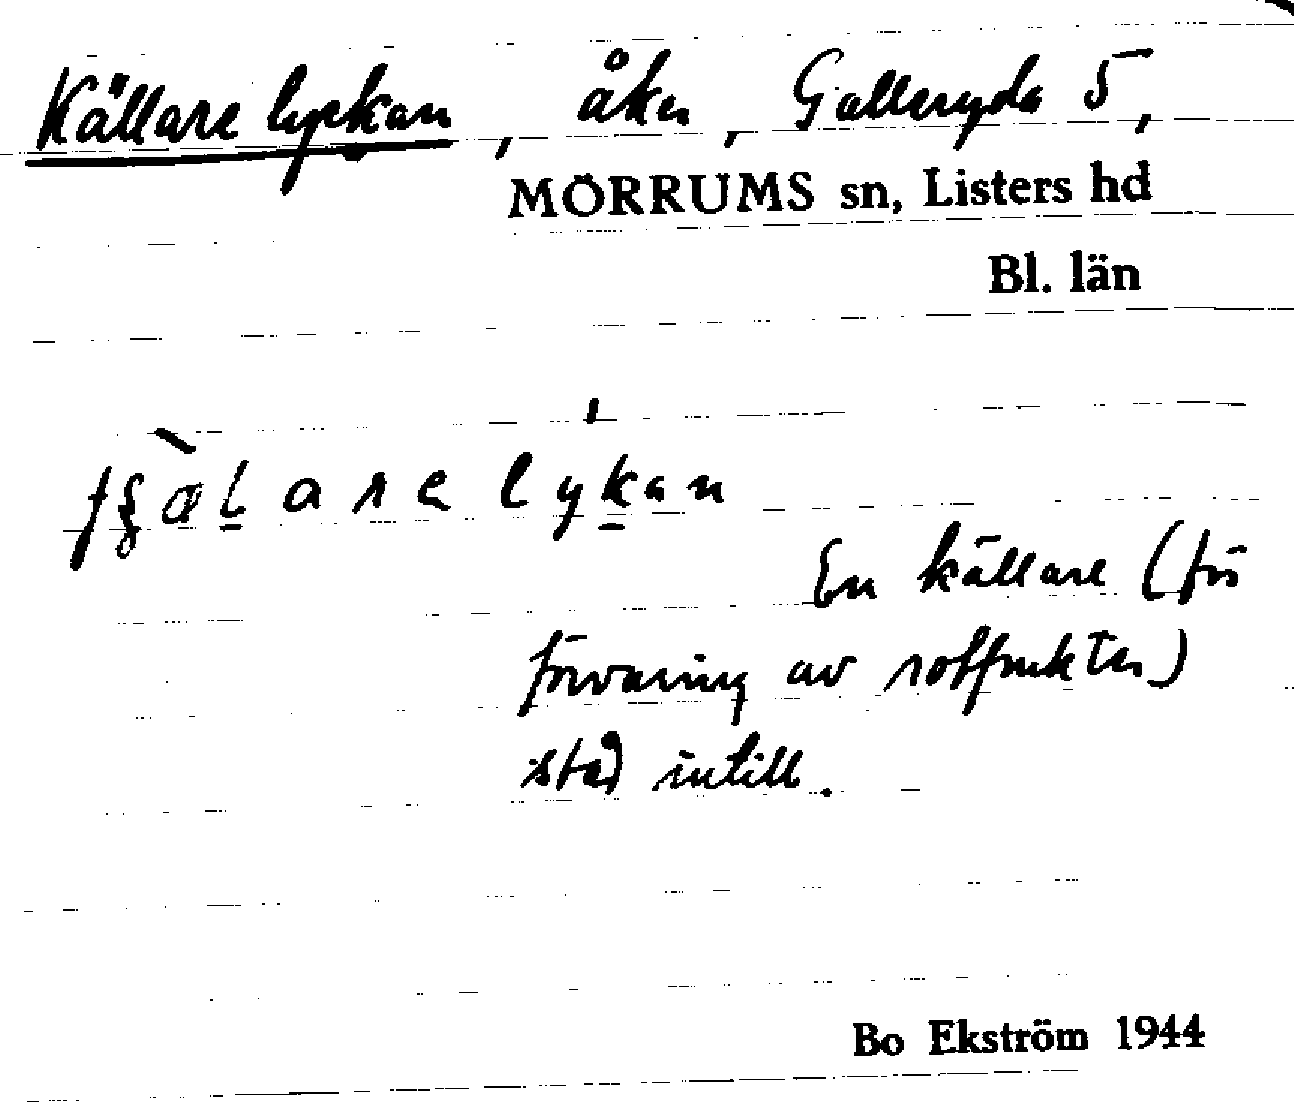 Källarelyckan, åker, Galleryda 5,
MÖRRUMS sn, Listers hd
Bl. län
En källare (för
förvaring av rotfrukter)
stod intill.
Bo Ekström 1944